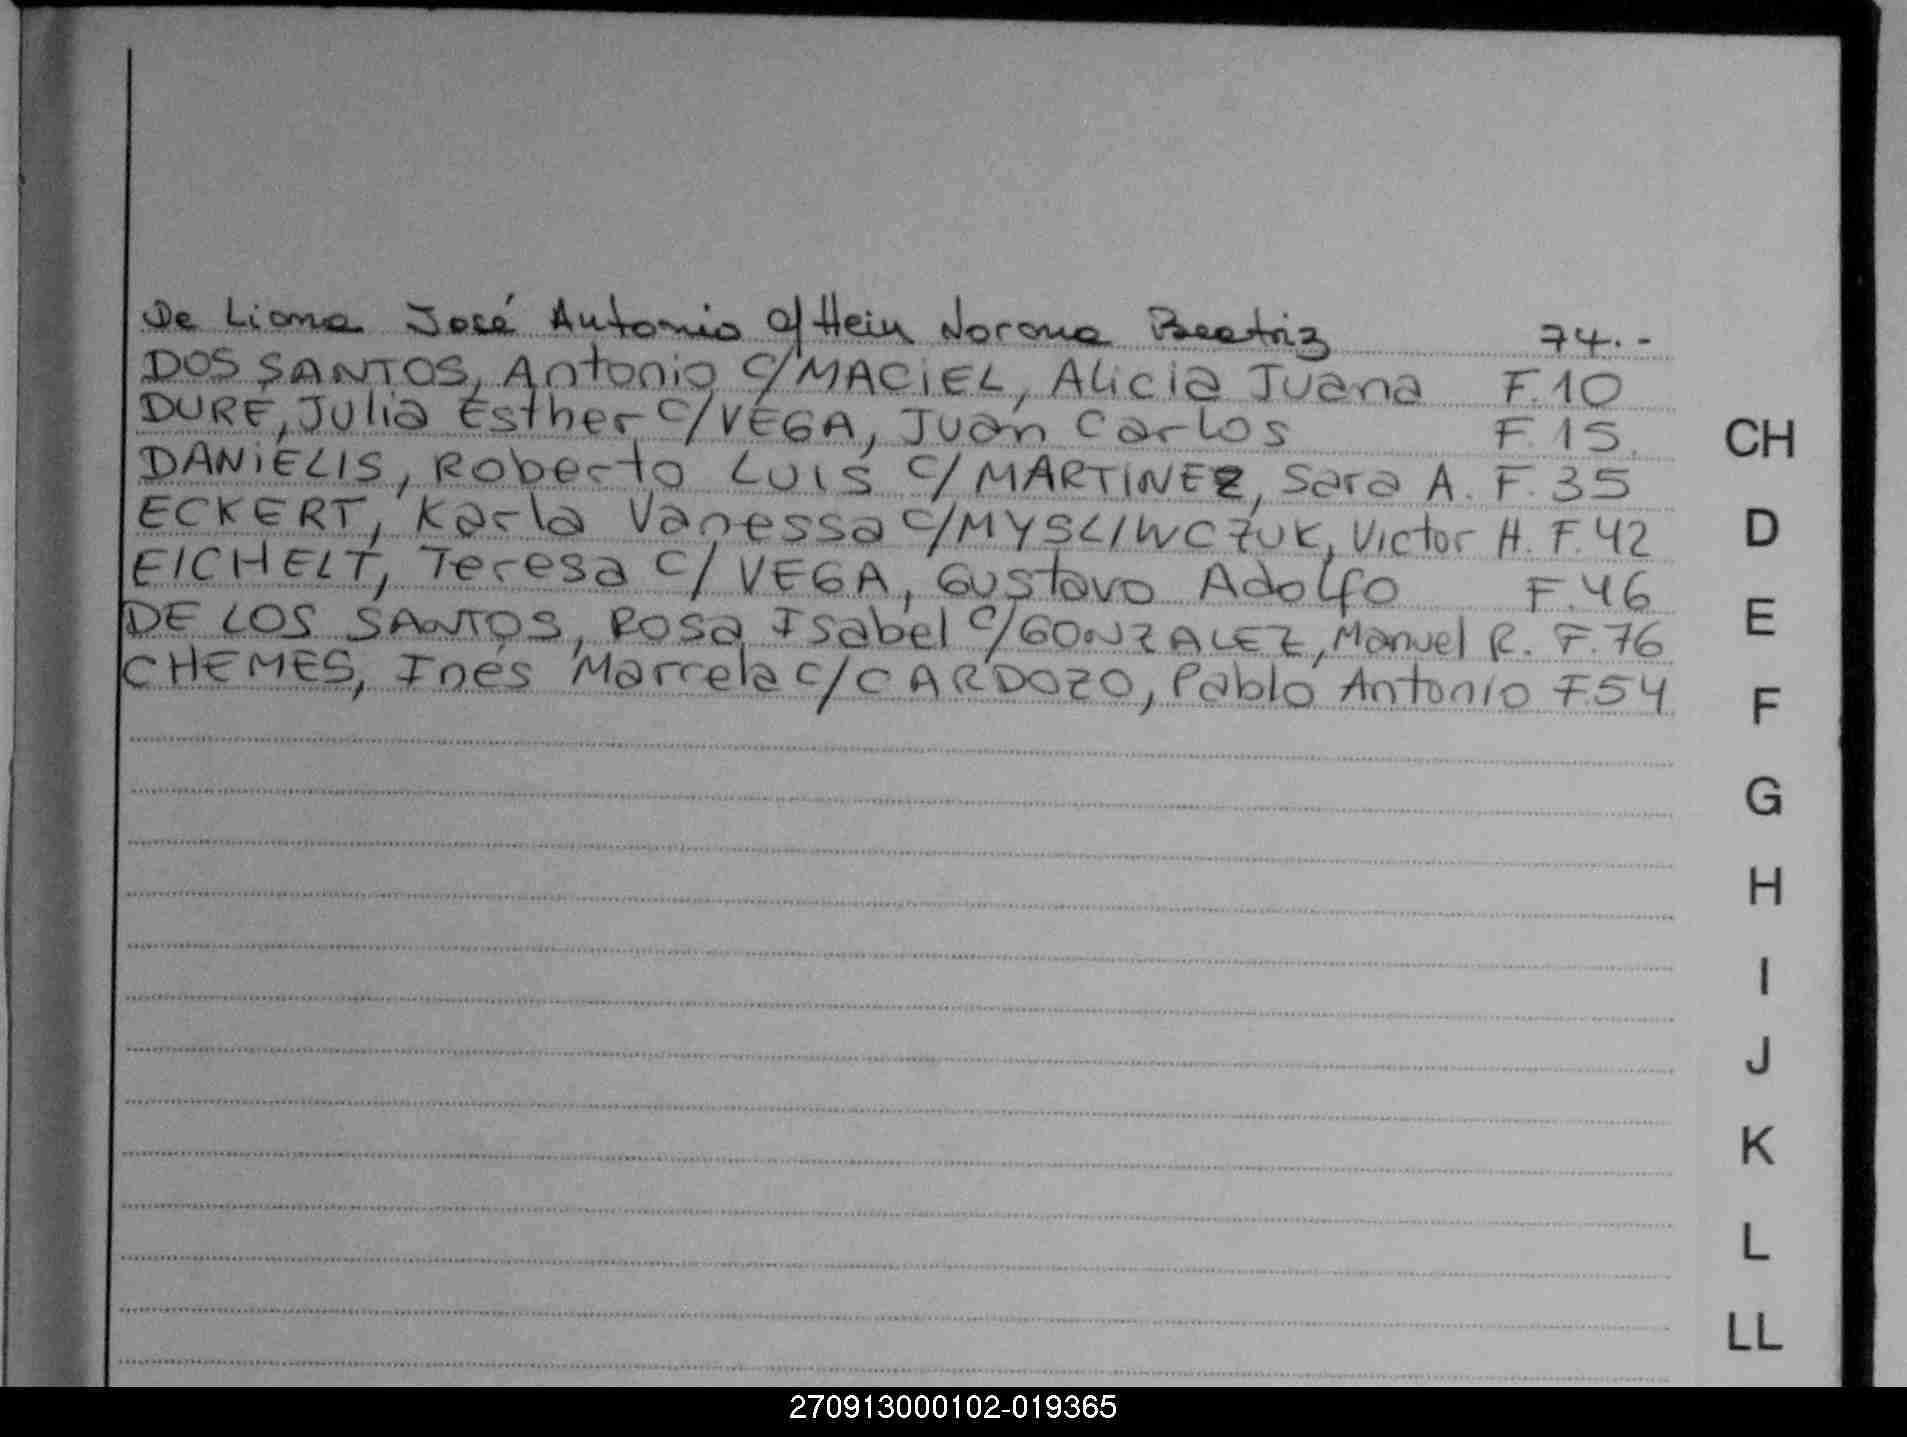 De Lioma José Antonio c/ Hein Norma Beatriz 74.-
DOS SANTOS, Antonio c/ MACIEL, Alicia Juana F.10
DURE, Julia Esther c/ VEGA, Juan Carlos F.15.
DANIELIS, Roberto LUIS c/ MARTINEZ, Sara A. F.35
ECKERT, Karla Vanessa c/ MYSLIWCZUK, Victor H. F.42
EICHELT, Teresa c/ VEGA, Gustavo Adolfo F.46
DE LOS SANTOS, Rosa Isabel c/ GONZALEZ, Manuel R. F.76
CHEMES, Inés Marcela c/ CARDOZO, Pablo Antonio F.54
CH
D
E
F
G
H
I
J
K
L
LL
270913000102-019365